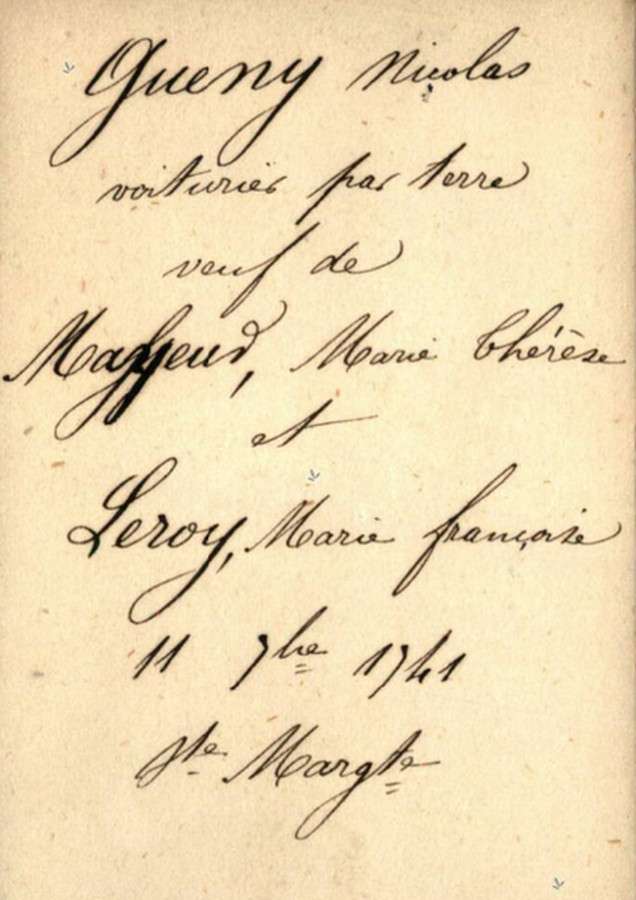 Queny Nicolas
voiturier par terre
veuf de
Marie Thérèse
et
Leroy, Marie françoise
11 7bre 1741
Ste Margte